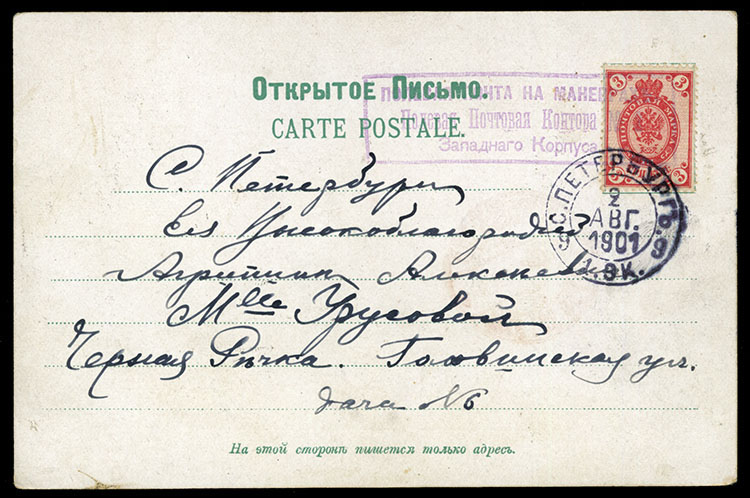 Открытое Письмо.
CARTE POSTALE.
ПОЧТА НА МАНЕВ
Полевая Почтовая Контора
Западнаго Корпуса
3 3
ПОЧТОВАЯ МАРКА
3 3
С.ПЕТЕРБУРГЪ
2
АВГ.
1901
1.ЭК.
С. Петербург
Ея Высокоблагородiю
Mlle Урусовой
Черная Рѣчка. Головинская ул.
дача № 6
На этой сторонѣ пишется только адресъ.